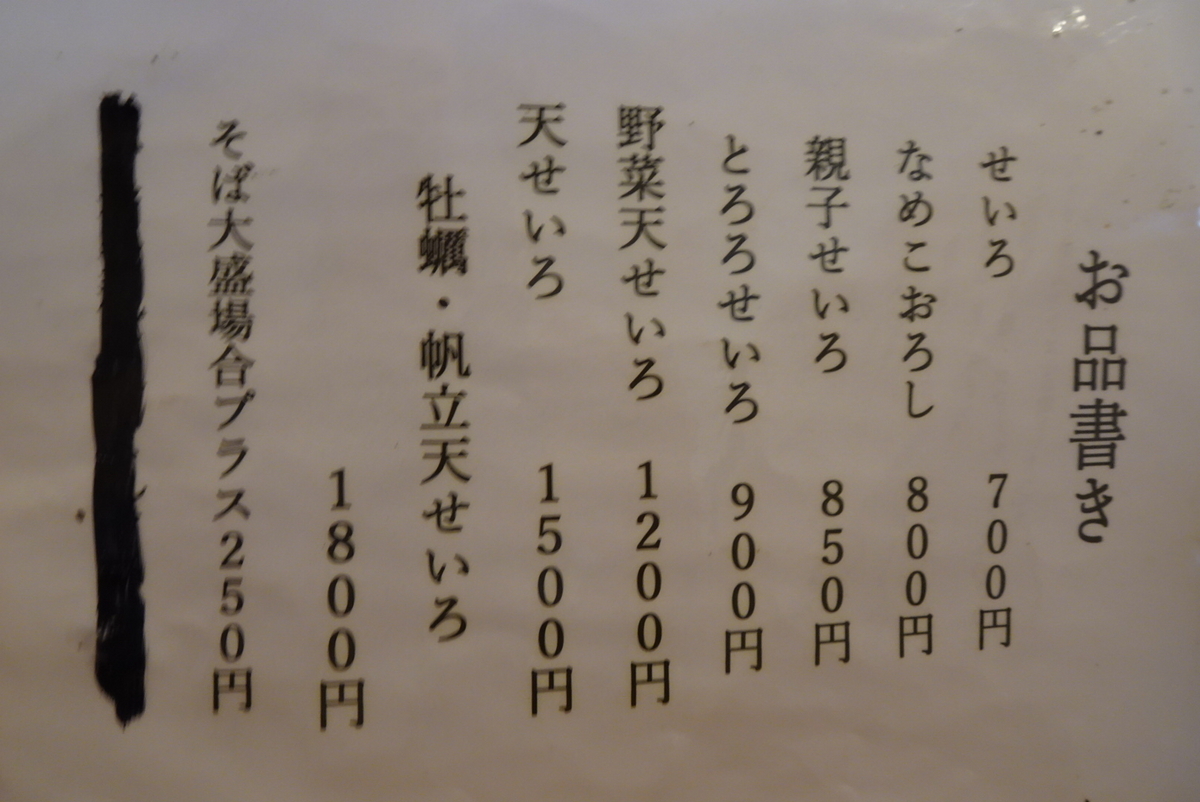 お品書き
せいろ 700円
なめこおろし 800円
親子せいろ 850円
とろろせいろ 900円
野菜天せいろ 1200円
天せいろ 1500円
牡蠣・帆立天せいろ
1800円
そば大盛場合プラス250円